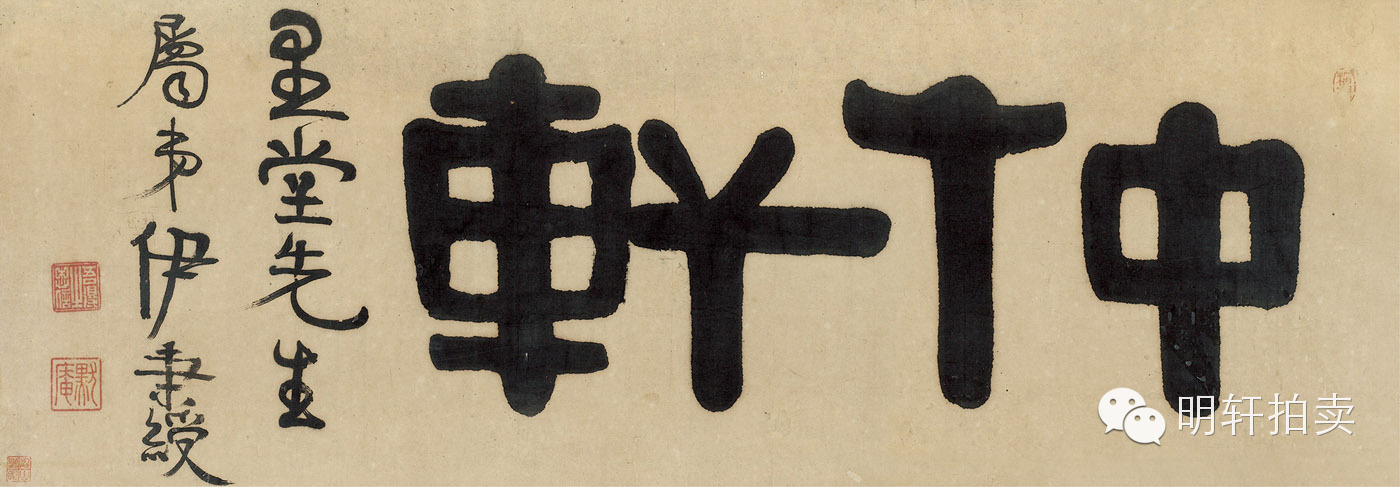 仲軒
里堂先生
屬弟伊秉綬
明轩拍卖